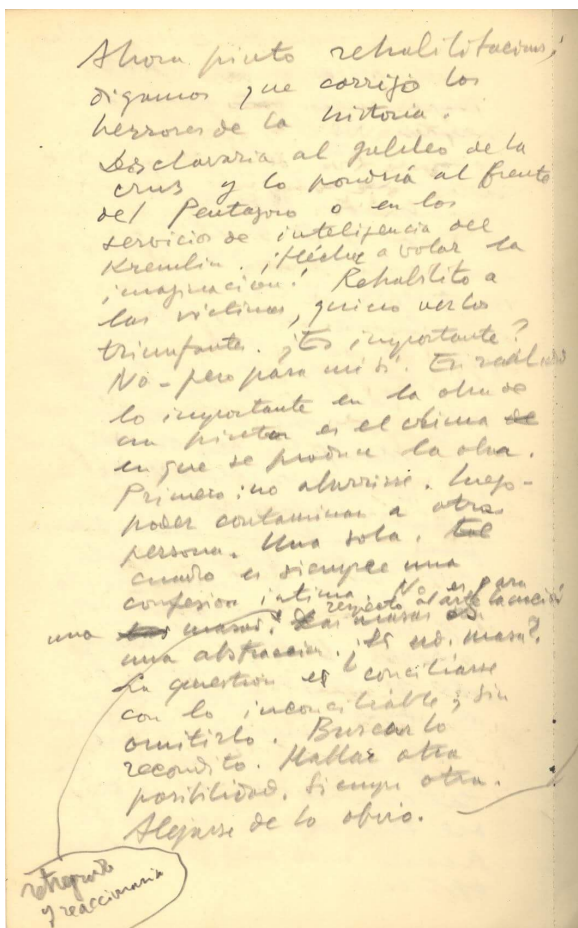 Ahora pinto rehabilitacions,
digamos que corrijo los
herrores de la historia.
Desclavaria al galileo de la
crus y lo pondría al frente
del Pentagono o en los
servicios de inteligencia del
Kremlin. ¡Héchese a volar la
imaginacion! Rehabilito a
las victimas, quiero verlos
triumfantes. ¿Es importante?
No - pero para mi si. En realidad
lo importante en la obra de
un pintor es el clima de
en que se produce la obra.
Primero: no aburrirse. Luego -
poder contaminar a otra
persona. Una sola.
cuadro es siempre una
confesion intima. No es para
una masas. respecto al arte la
una abstraccion. ¿Es ud. masa?
La question es conciliarse
con lo inconciliable y sin
omitirlo. Buscar lo
recondito. Hallar otra
posibilidad. Siempre otra.
Alejarse de lo obvio. —
retrograda
y reaccionaria